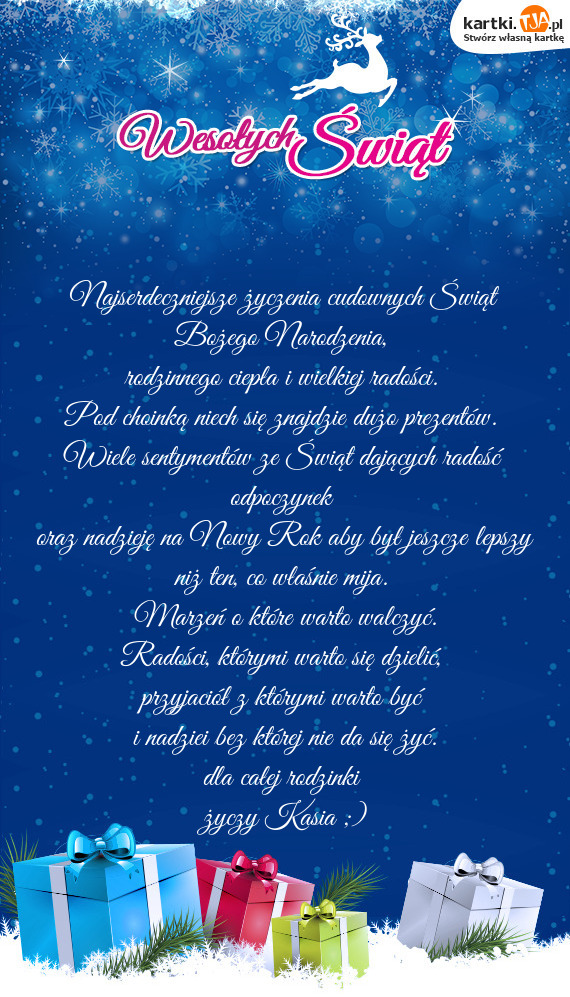 kartki.TJA.pl
Stwórz własną kartkę
Wesołych Świąt
Najserdeczniejsze życzenia cudownych Świąt
Bożego Narodzenia,
rodzinnego ciepła i wielkiej radości.
Pod choinką niech się znajdzie dużo prezentów.
Wiele sentymentów ze Świąt dających radość
odpoczynek
oraz nadzieję na Nowy Rok aby był jeszcze lepszy
niż ten, co właśnie mija.
Marzeń o które warto walczyć.
Radości, którymi warto się dzielić,
przyjaciół z którymi warto być
i nadziei bez której nie da się żyć.
dla całej rodzinki
życzy Kasia ;)